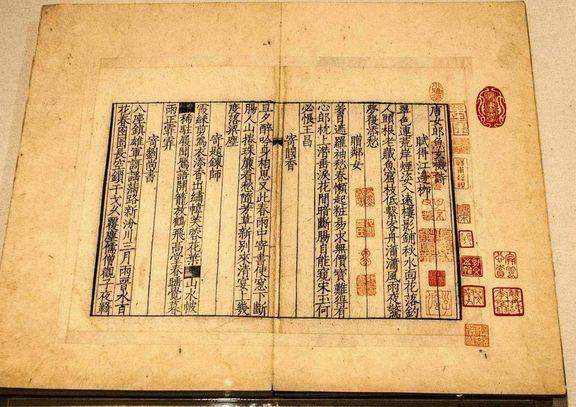 唐女郎魚玄機詩
賦得江邊柳
翠色連荒岸煙姿入遠樓影鋪秋水面花落釣
人頭根老藏魚窟枝低繫客舟瀟瀟風雨夜驚
夢復添愁
贈鄰女
羞日遮羅袖愁春懶起粧易求無價寶難得有
心郎枕上潛垂淚花間暗斷腸自能窺宋玉何
必恨王昌
寄國香
旦夕醉吟身相思又此春雨中寄書使窗下斷
腸人山捲珠簾看愁隨芳草新別來清宴上幾
度落梁塵
寄題鍊師
霞綵剪為衣添香出繡幃芙蓉花葉山水帔
稀駐履聞鶯語開籠放鶴飛高堂春睡覺暮
雨正霏霏
寄劉尚書
八座鎮雄軍歌謠滿路新汾川三月雨晉水百
花春囹圄長空鎖干戈久覆塵儒僧觀子夜羈